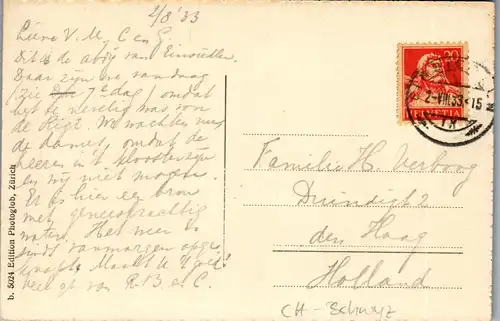 2/8 '33
Lieve V. M. C en G.
Dit is de abdij van Einsiedlen.
Daar zijn we vandaag
(zie 7e dag) omdat
het te nevelig was von
de Rigi. We wachten nu
de dames, omdat de
heeren in 't klooster zijn
en wij niet mogen.
Er is hier een bron
met geneeskrachtig
water. Het weer is
sinds vanmorgen opge-
knapt. Maakt U 't goed?
veel gr van R. B en C.
b. 5024 Edition Photoglob, Zürich
20
HELVETIA
2.VIII.33-15
Familie H. Verboog
Driendist 2
den Haag
Holland
CH - Schwyz